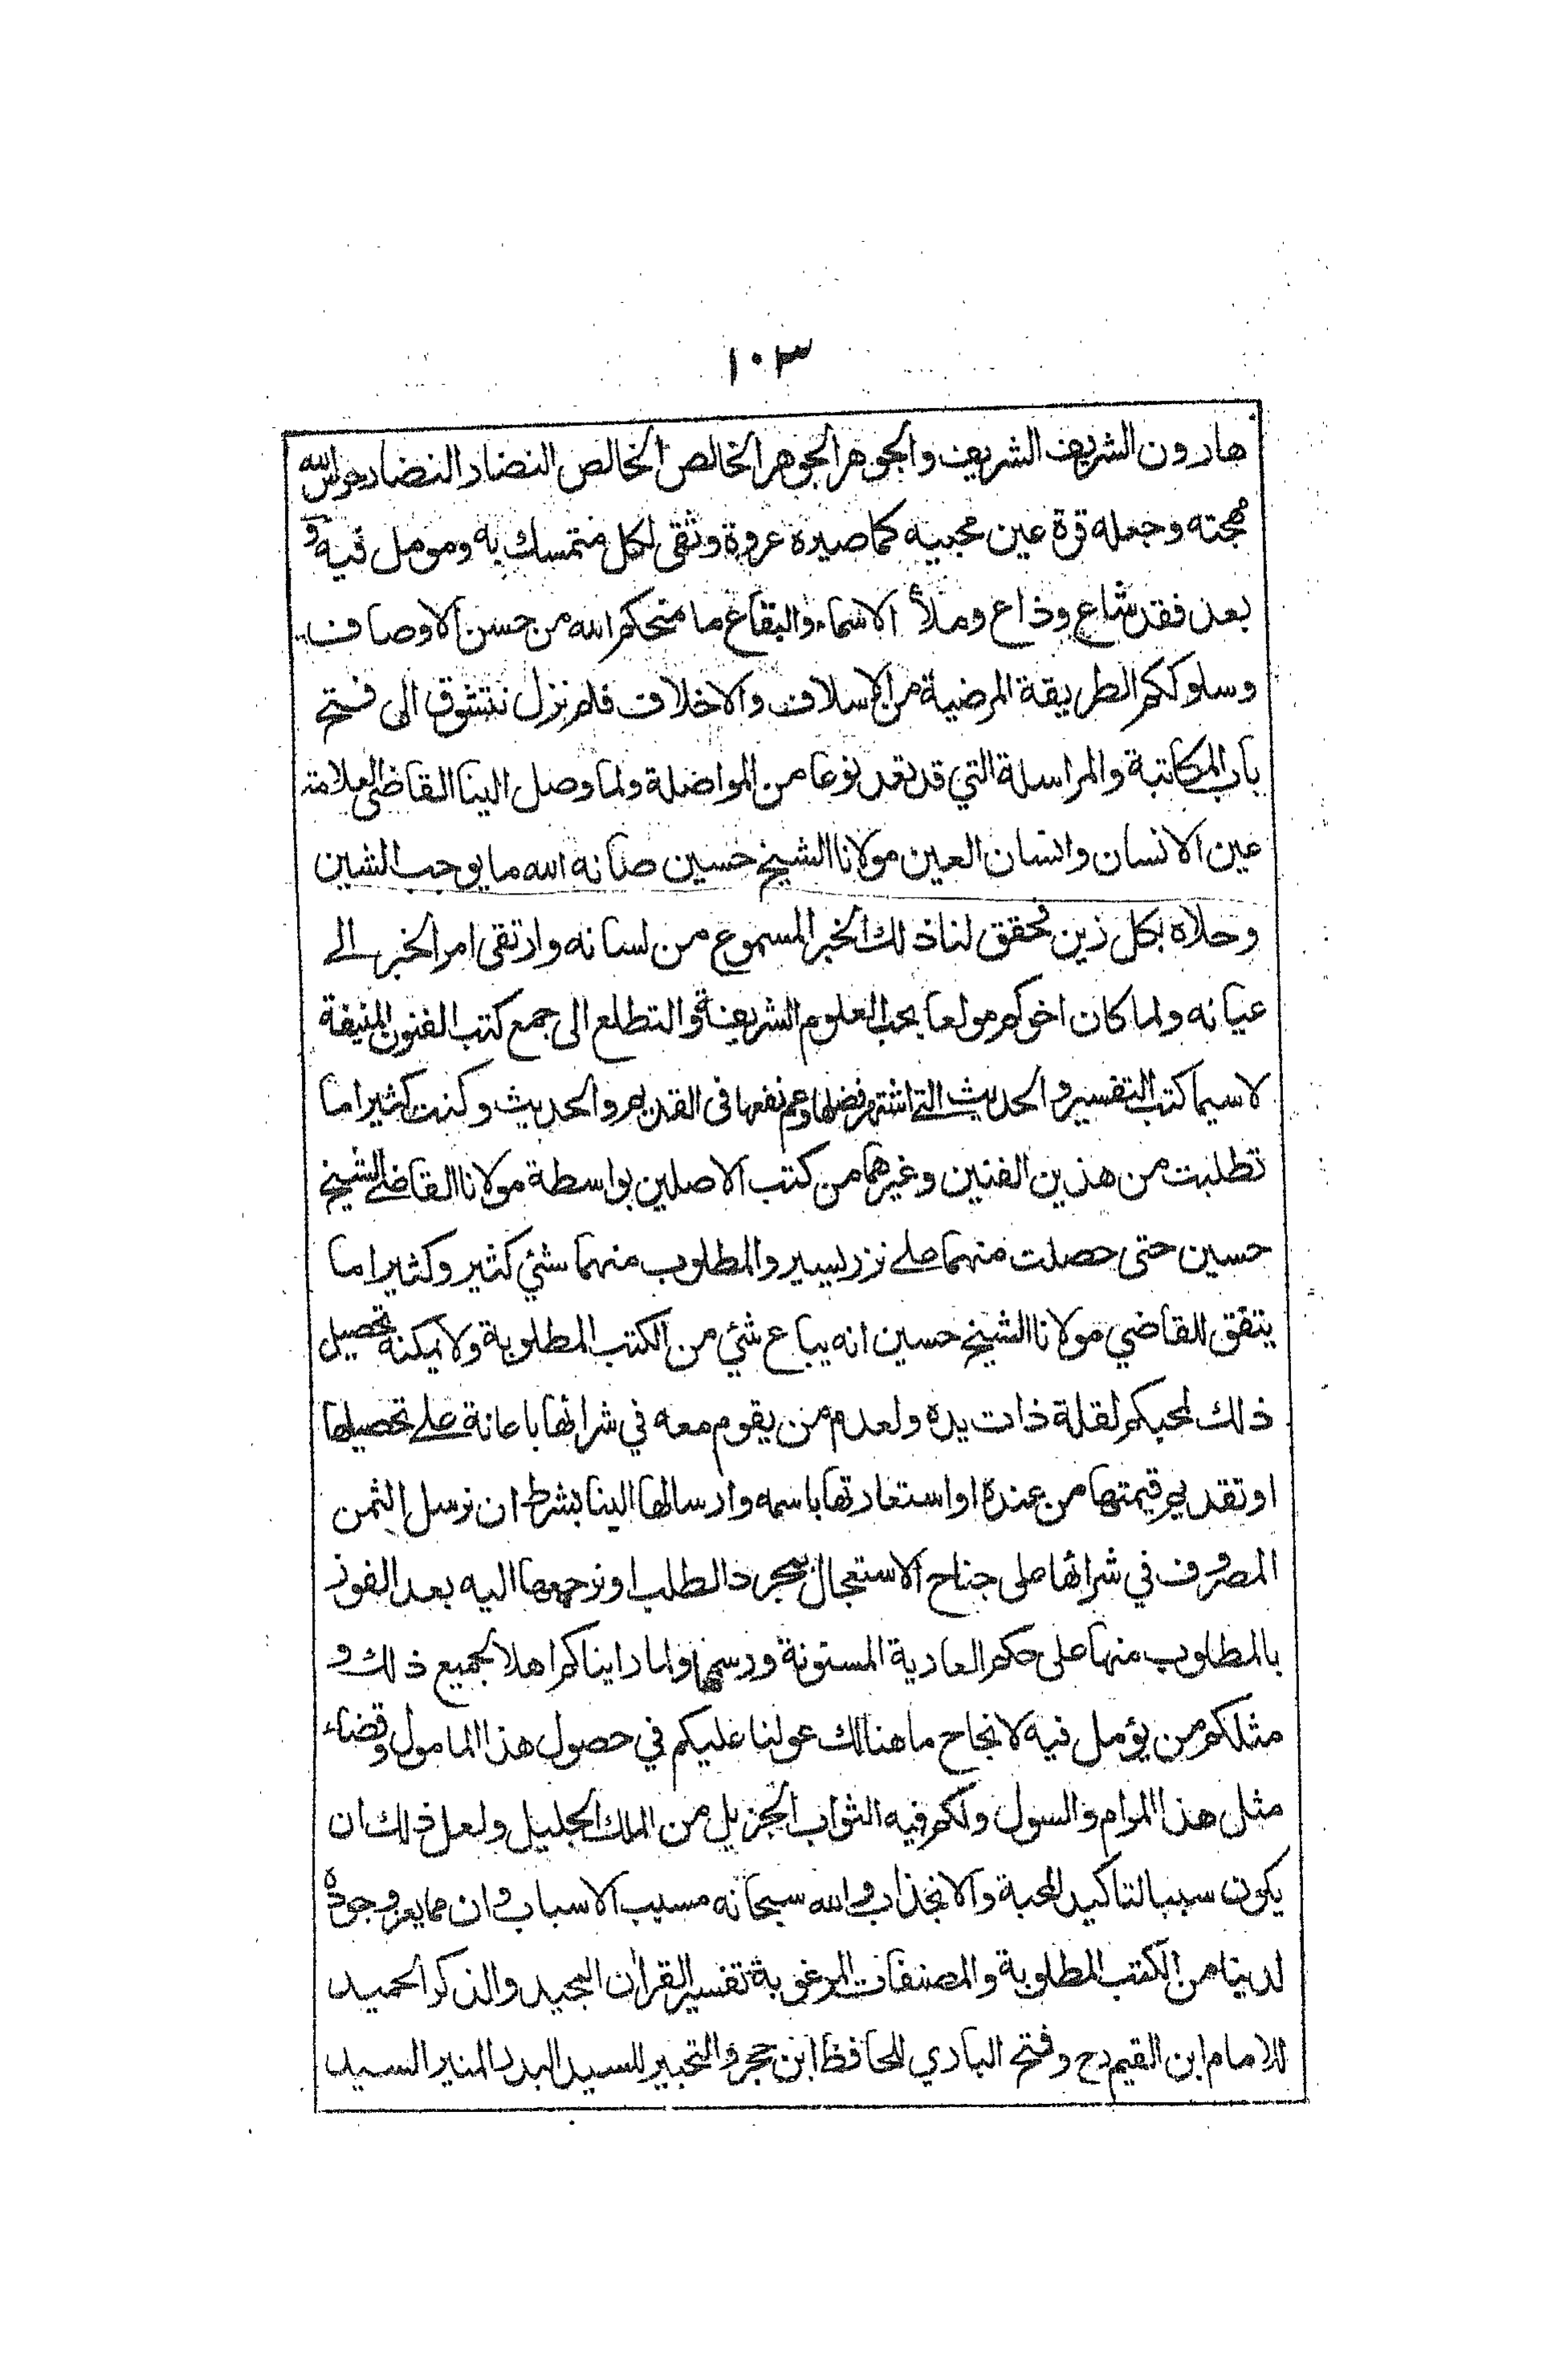 ١٠٣
هارون الشريف الشريف والجوهر الجوهر الخالص الخالص النضار النضار حرس الله
مهجته وجعله قرة عين محبيه كما صيره عروة وثقى لكل متمسك به ومومل فيه و
بعد فقد شاع وذاع وملأ الاسماء والبقاع ما منحكم الله من حسن الاوصاف
وسلوككم الطريقة المرضية من الاسلاف والاخلاف فلم نزل نتشوق الى فتح
باب المكاتبة والمراسلة التي قد تعد نوعا من المواصلة ولما وصل الينا القاضي العلامة
عين الانسان وانسان العين مولانا الشيخ حسين صانه الله ما يوجب الشين
وحلاه بكل زين تحقق لنا ذلك الخبر المسموع من لسانه وارتقى امر الخبر الے
عيانه ولما كان اخوكم مولعا بحب العلوم الشريفة والتطلع الى جمع كتب الفنون المنيفة
لا سيما كتب التفسير والحديث التے اشتهر فضلها وعم نفعها فى القديم والحديث وكنت كثيرا ما
تطلبت من هذين الفنين وغيرهما من كتب الاصلين بواسطة مولانا القاضے الشيخ
حسين حتى حصلت منهما علے نزر يسير والمطلوب منهما شئي كثير وكثيرا ما
يتفق للقاضي مولانا الشيخ حسين انه يباع شئي من الكتب المطلوبة ولا يمكنه تحصيل
ذلك لمحبكم لقلة ذات يده ولعدم من يقوم معه في شرائها باعانة علے تحصيلها
او تقديم قيمتها من عنده او استعارتها باسمه وارسالها الينا بشرط ان نرسل الثمن
المصروف في شرائها على جناح الاستعجال بمجرد الطلب او نرجعها اليه بعد الفوز
بالمطلوب منها على حكم العارية المسنونة ورسمها ولما راينا كم اهلا لجميع ذلك و
مثلكم من يؤمل فيه لانجاح ما هنالك عولنا عليكم في حصول هذا المامول وقضاء
مثل هذا المرام والسول ولكم فيه الثواب الجزيل من الملك الجليل ولعل ذلك ان
يكون سببا لتاكيد المحبة والانجذاب والله سبحانه مسبب الاسباب وان مما يعز وجوده
لدينا من الكتب المطلوبة والمصنفات المرغوبة تفسير القران المجيد والذكر الحميد
للامام ابن القيم رح وفتح الباري للحافظ ابن حجر والتحبير للسيد البدر المنير السيد